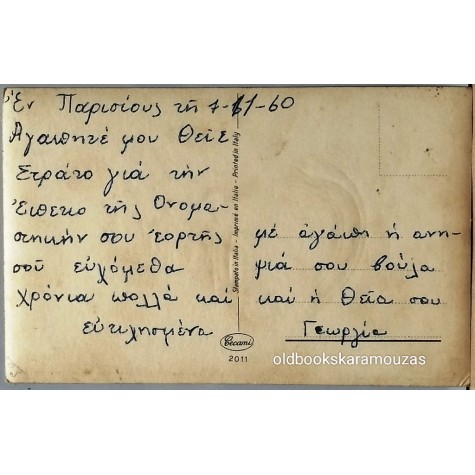 Ἐν Παρισίους τῇ 7-11-60
Αγαπητέ μου Θεῖε
Στράτο γιά τήν
ἐπθετο τῆς Ονομα-
στηκήν σου ἑορτῆς
σοῦ εὐχόμεθα
Χρόνια πολλά και
εὐτηχησμένα
μέ ἀγάπη ἡ ανη-
ψιά σου Βούλα
καί ἡ Θεῖα σου
Γεωργία
Stampato in Italia - Imprimé en Italie - Printed in Italy
Cecami
2011
oldbookskaramouzas